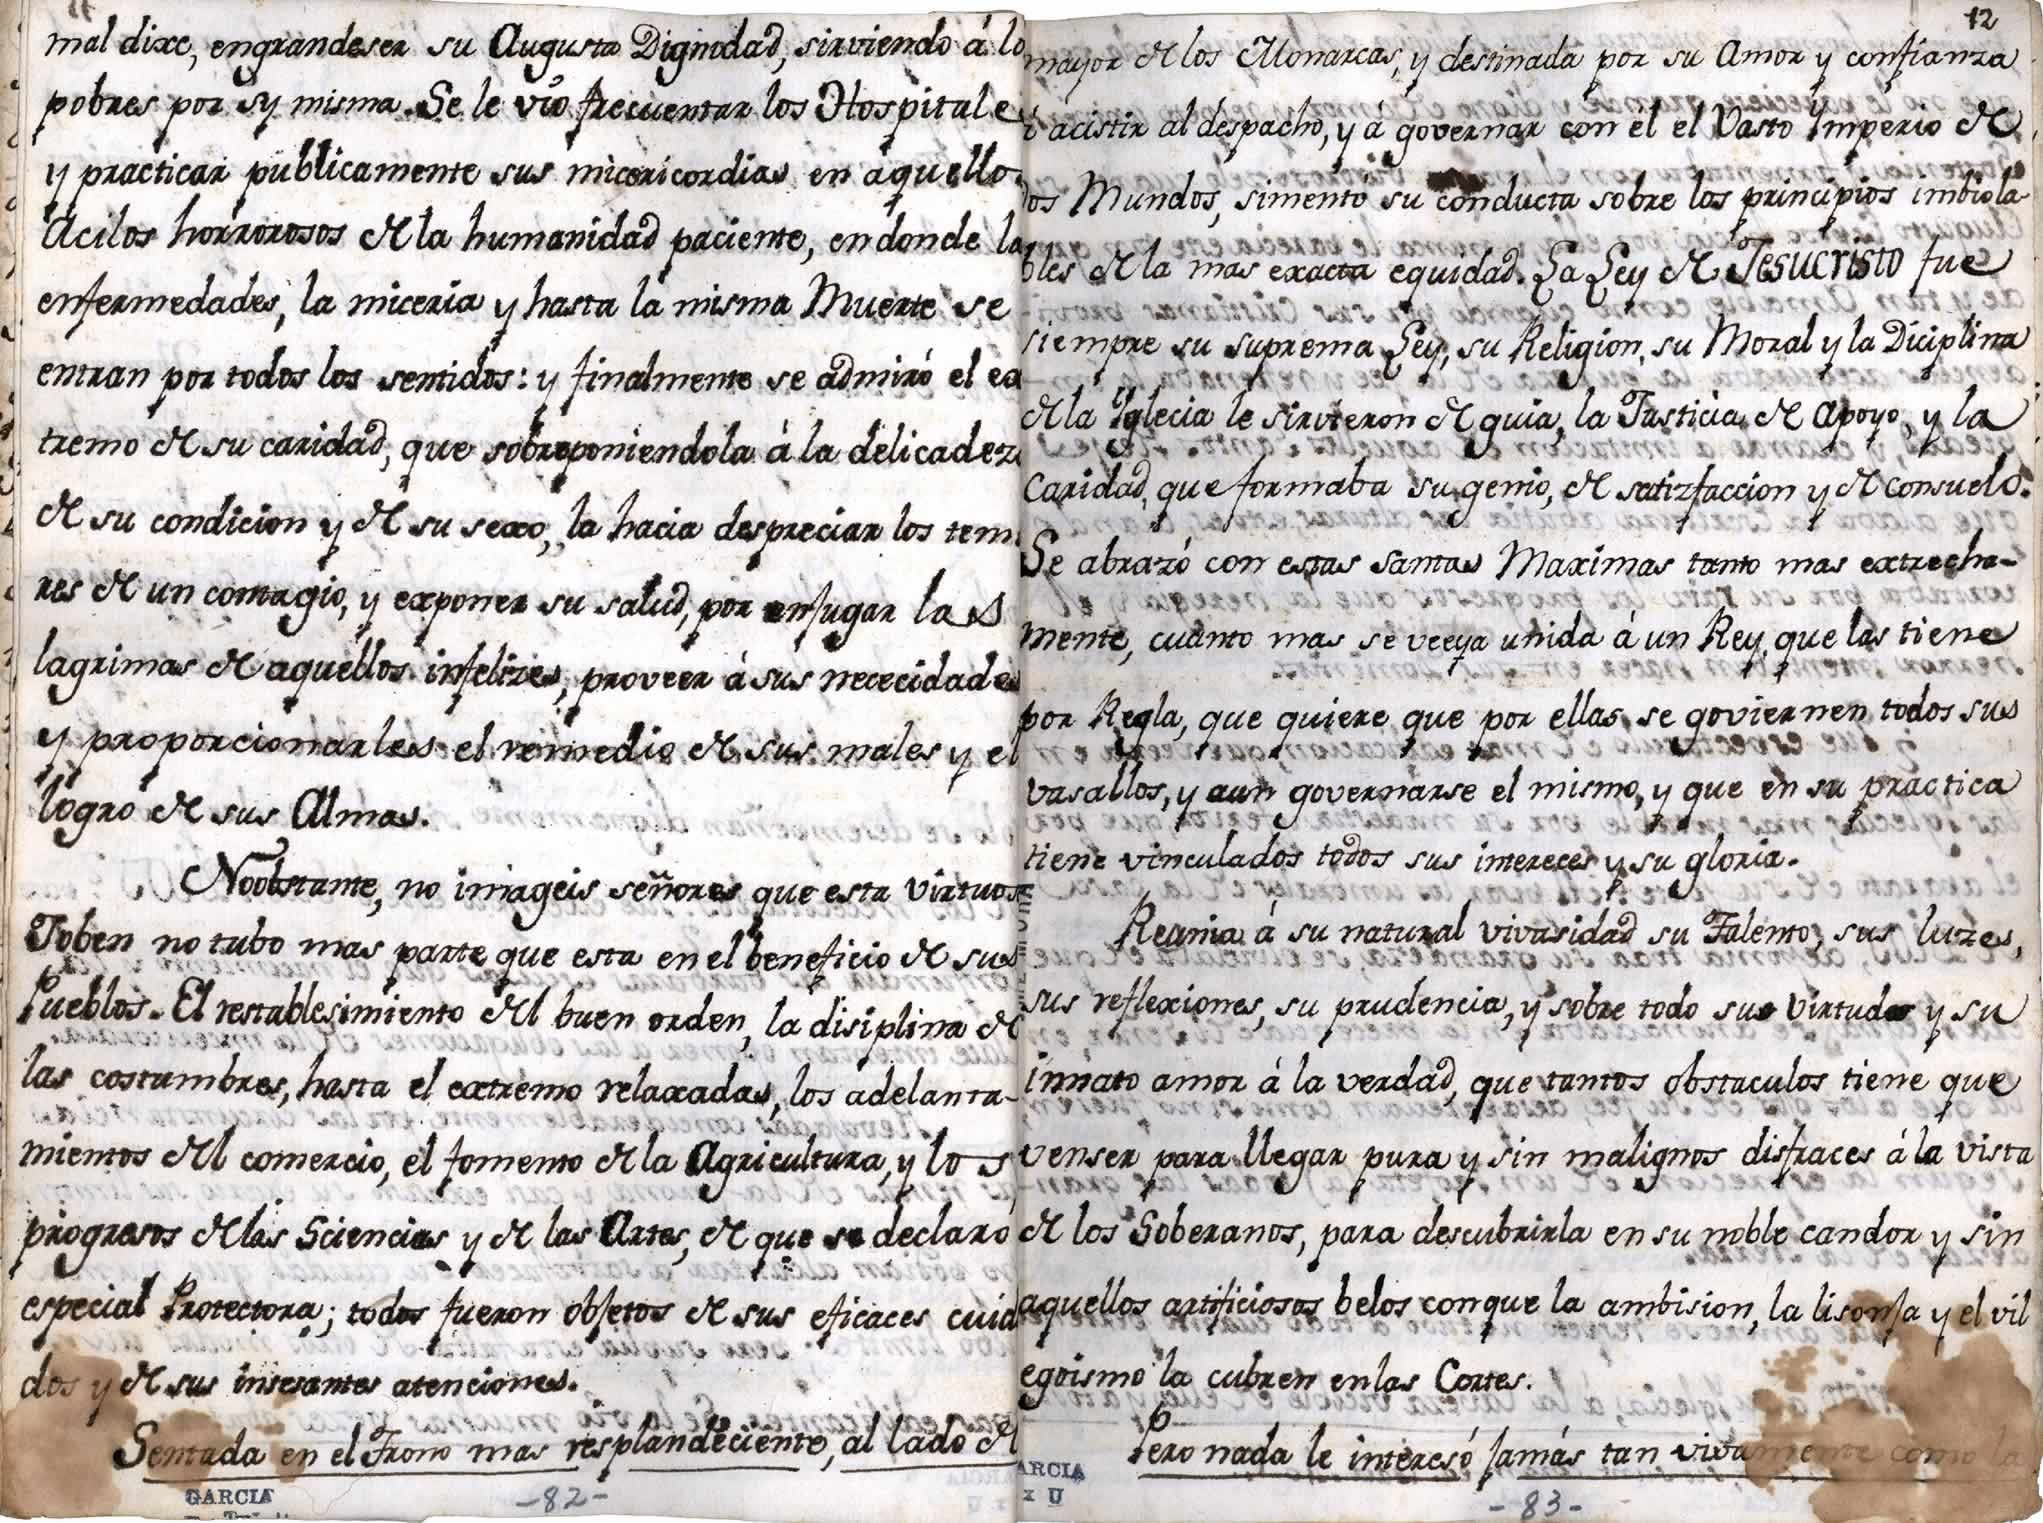 mal dixe, engrandeser su Augusta Dignidad, sirviendo á lo
pobres por sy misma. Se le vío frecuentar los Hospitale
y practicar publicamente sus micericordias en aquello
Acilos horrorosos de la humanidad paciente, en donde la
enfermedades, la miceria y hasta la misma Muerte se
entran por todos los sentidos: y finalmente se admiró el ex
tremo de su caridad, que sobreponiendola á la delicadez
de su condicion y de su sexo, la hacia despreciar los tem
res de un contagio, y exponer su salud, por enjugar las
lagrimas de aquellos infelizes, proveer á sus nececidades
y proporcionarles el remedio de sus males y el
logro de sus Almas.
Noobstante, no imageis señores que esta virtuos
Joben no tubo mas parte que esta en el beneficio de sus
Pueblos. El restablesimiento del buen orden, la disiplina de
las costumbres, hasta el extremo relaxadas, los adelanta-
mientos del comercio, el fomento de la Agricultura, y los
progresos de las Sciencias y de las Artes, de que se declaró
especial Protectora; todos fueron objetos de sus eficaces cuid
dos y de sus insesantes atenciones.
Sentada en el Trono mas resplandeciente, al lado del
GARCIA
-82-
12
mayor de los Monarcas, y destinada por su Amor y confianza
á acistir al despacho, y á governar con él el Vasto Ymperio de
dos Mundos, simentó su conducta sobre los principios imbiola
bles de la mas exacta equidad. La Ley de Jesucristo fue
siempre su suprema Ley, su Religion, su Moral y la Diciplina
de la Yglecia le sirvieron de guia, la Justicia de Apoyo, y la
Caridad, que formaba su genio, de satizfaccion y de consuelo.
Se abrazó con estas santas Maximas tanto mas extrecha-
mente, cuanto mas se veeya unida á un Rey, que las tiene
por Regla, que quiere que por ellas se goviernen todos sus
vasallos, y aun governarse el mismo, y que en su practica
tiene vinculados todos sus intereces y su gloria.
Reunia á su natural vivasidad su Talento, sus luzes,
sus reflexiones, su prudencia, y sobre todo sus Virtudes y su
innato amor á la verdad, que tantos obstaculos tiene que
venser para llegar pura y sin malignos disfraces á la vista
de los Soberanos, para descubrirla en su noble candor y sin
aquellos artificiosos belos conque la ambision, la lisonja y el vil
egoismo la cubren en las Cortes.
Pero nada le interesó jamás tan vivamente como la
ARCIA
x U
-83-